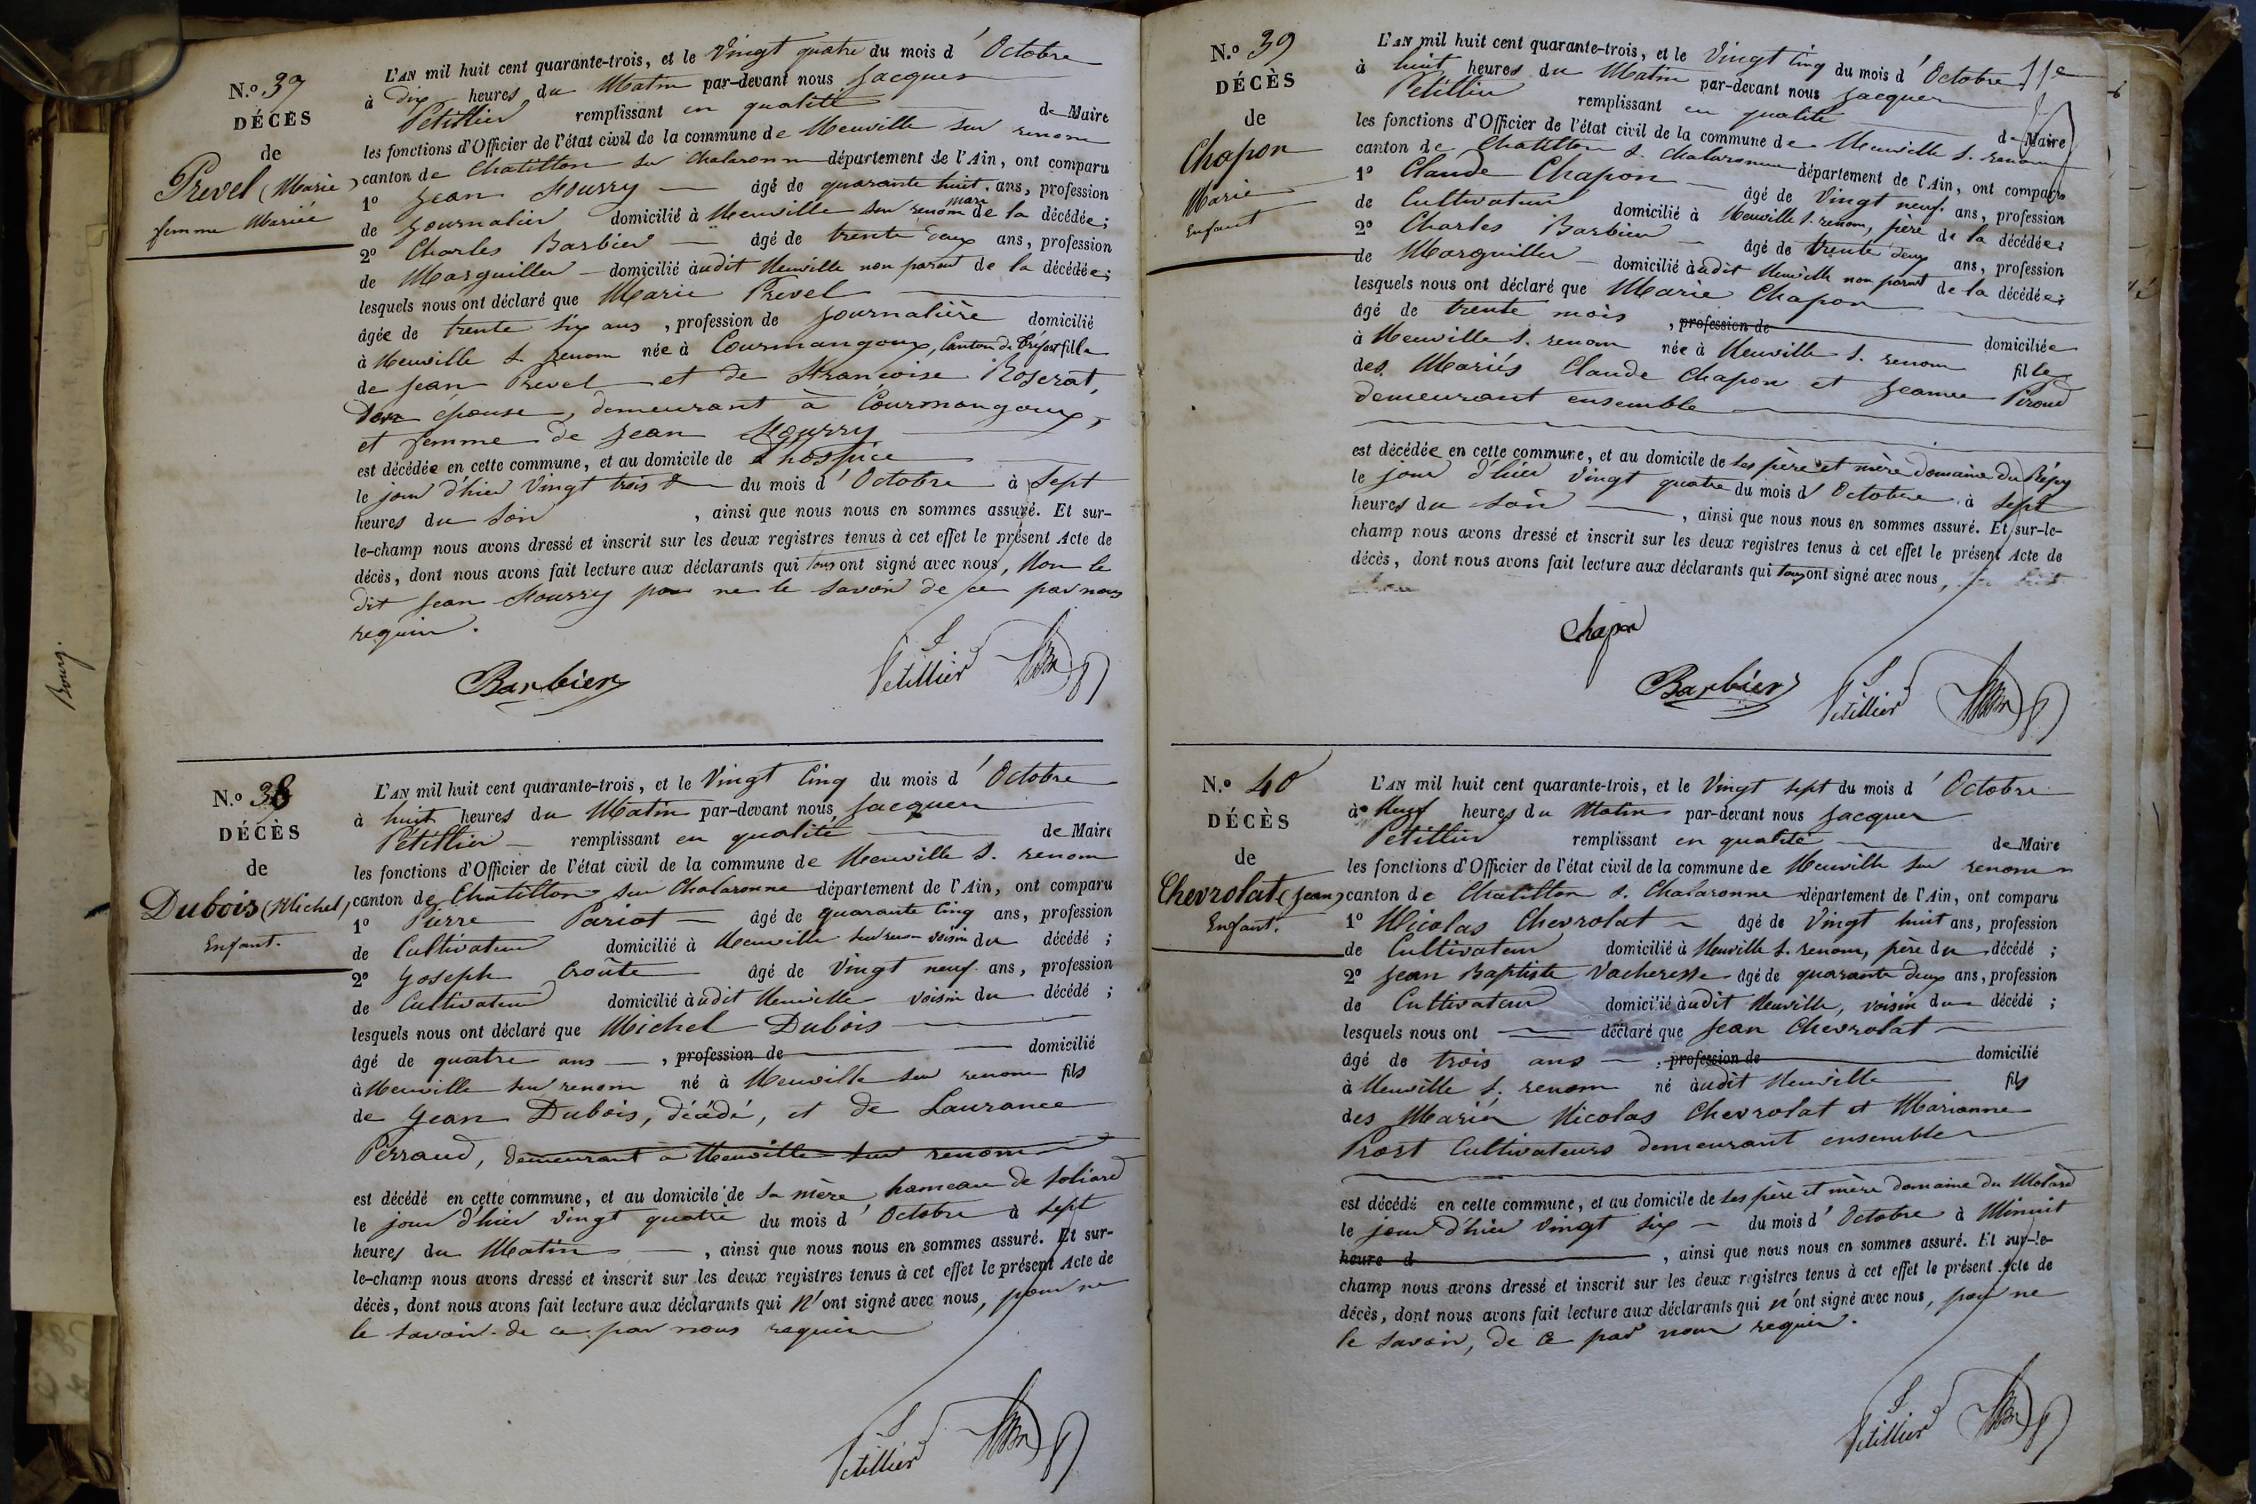 N.º 37
DÉCÈS
de
Prevel (Marie)
femme Mariée
L'AN mil huit cent quarante-trois, et le Vingt quatre du mois d'Octobre
à dix heures du Matin par-devant nous Jacques
Pétillier remplissant en qualité de Maire
les fonctions d'Officier de l'état civil de la commune de Neuville sur renom
canton de Chatillon sur Chalaronne département de l'Ain, ont comparu
1º Jean Mourry âgé de quarante huit ans, profession
de Journalier domicilié à Neuville sur renom mari de la décédée;
2º Charles Barbier âgé de trente deux ans, profession
de Marguiller domicilié àudit Neuville non parent de la décédée;
lesquels nous ont déclaré que Marie Prevel
âgée de trente six ans, profession de Journalière domicilié
à Neuville s. renom née à Courmangoux, Canton de Tréfort fille
de Jean Prevel et de Francoise Roserat,
son épouse, demeurant à Courmangoux,
et femme de Jean Mourry
est décédée en cette commune, et au domicile de L'hospice
le jour d'hier Vingt trois du mois d'Octobre à Sept
heures du Soir, ainsi que nous nous en sommes assuré. Et sur-
le-champ nous avons dressé et inscrit sur les deux registres tenus à cet effet le présent Acte de
décès, dont nous avons fait lecture aux déclarants qui tous ont signé avec nous, Non le
dit Jean Mourry pour ne le savoir de ce par nous
requin.
Barbier Pétillier
N.º 38
DÉCÈS
de
Dubois (Michel)
Enfant.
L'AN mil huit cent quarante-trois, et le Vingt Cinq du mois d'Octobre
à huit heures du Matin par-devant nous Jacques
Pétillier remplissant en qualité de Maire
les fonctions d'Officier de l'état civil de la commune de Neuville s. renom
canton de Chatillon sur Chalaronne département de l'Ain, ont comparu
1º Pierre Pariot âgé de quarante Cinq ans, profession
de Cultivateur domicilié à Neuville sur renom voisin du décédé;
2º Joseph Croûte âgé de Vingt neuf ans, profession
de Cultivateur domicilié àudit Neuville voisin du décédé;
lesquels nous ont déclaré que Michel Dubois
âgé de quatre ans, profession de domicilié
à Neuville sur renom né à Neuville sur renom fils
de Jean Dubois, décédé, et de Laurance
Perraud, demeurant à Neuville sur renom
est décédé en cette commune, et au domicile de sa mère hameau de Soliard
le jour d'hier Vingt quatre du mois d'Octobre à Sept
heures du Matin, ainsi que nous nous en sommes assuré. Et sur-
le-champ nous avons dressé et inscrit sur les deux registres tenus à cet effet le présent Acte de
décès, dont nous avons fait lecture aux déclarants qui N'ont signé avec nous, pour ne
le savoir de ce par nous requin
Pétillier
N.º 39
DÉCÈS
de
Chapon
Marie
Enfant
L'AN mil huit cent quarante-trois, et le Vingt Cinq du mois d'Octobre 11e
à huit heures du Matin par-devant nous Jacques
Pétillier remplissant en qualité de Maire
les fonctions d'Officier de l'état civil de la commune de Neuville s. renom
canton de Chatillon s. Chalaronne département de l'Ain, ont comparu
1º Claude Chapon âgé de Vingt neuf ans, profession
de Cultivateur domicilié à Neuville s. renom, père de la décédée;
2º Charles Barbier âgé de trente deux ans, profession
de Marguiller domicilié àudit Neuville non parent de la décédée;
lesquels nous ont déclaré que Marie Chapon
âgé de trente mois, profession de domiciliée
à Neuville s. renom née à Neuville s. renom fille
des Mariés Claude Chapon et Jeanne Piroud
demeurant ensemble
est décédée en cette commune, et au domicile de ses père et mère Domaine du
le jour d'hier Vingt quatre du mois d'Octobre à Sept
heures du soir, ainsi que nous nous en sommes assuré. Et sur-le-
champ nous avons dressé et inscrit sur les deux registres tenus à cet effet le présent Acte de
décès, dont nous avons fait lecture aux déclarants qui tous ont signé avec nous,
Chapon
Barbier Pétillier
N.º 40
DÉCÈS
de
Chevrolat (Jean)
Enfant.
L'AN mil huit cent quarante-trois, et le Vingt sept du mois d'Octobre
à Neuf heures du Matin par-devant nous Jacques
Pétillier remplissant en qualité de Maire
les fonctions d'Officier de l'état civil de la commune de Neuville sur renom
canton de Chatillon s. Chalaronne département de l'Ain, ont comparu
1º Nicolas Chevrolat âgé de Vingt huit ans, profession
de Cultivateur domicilié à Neuville s. renom, père du décédé;
2º Jean Baptiste Vacheresse âgé de quarante deux ans, profession
de Cultivateur domicilié àudit Neuville, voisin du décédé;
lesquels nous ont déclaré que Jean Chevrolat
âgé de trois ans, profession de domicilié
à Neuville s. renom né àudit Neuville fils
des Mariés Nicolas Chevrolat et Marianne
Prost Cultivateurs demeurant ensemble
est décédé en cette commune, et au domicile de ses père et mère domaine du Molard
le jour d'hier Vingt six du mois d'Octobre à Minuit
heure d, ainsi que nous nous en sommes assuré. Et sur-le-
champ nous avons dressé et inscrit sur les deux registres tenus à cet effet le présent Acte de
décès, dont nous avons fait lecture aux déclarants qui n'ont signé avec nous, pour ne
le savoir, de ce par nous requin.
Pétillier
Bourg.